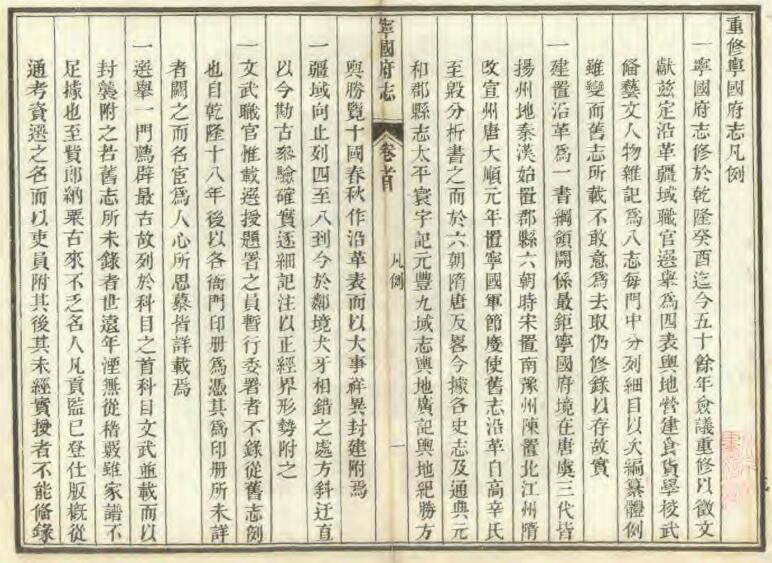 重修寧國府志凡例
一寧國府志修於乾隆癸酉迄今五十餘年僉議重修以徵文
獻茲定沿革疆域職官選舉為四表輿地營建食貨學校武
俻藝文人物雜記為八志每門中分列細目以次編纂體例
雖變而舊志所載不敢意為去取仍修錄以存故實
一建置沿革為一書綱領關係最鉅寧國府境在唐虞三代皆
揚州地秦漢始置郡縣六朝時宋置南豫州陳置北江州隋
改宣州唐大順元年置寧國軍節度使舊志沿革自高辛氏
至毀分析書之而於六朝隋唐反畧今據各史志及通典元
和郡縣志太平寰宇記元豐九域志輿地廣記輿地紀勝方
寧國府志
卷首
凡例
一
輿勝覽十國春秋作沿革表而以大事祥異封建附焉
一疆域向止列四至八到今於鄰境犬牙相錯之處方斜迂直
以今勘古叅驗確實逐細記注以正經界形勢附之
一文武職官惟載選授題署之員暫行委署者不錄從舊志例
也自乾隆十八年後以各衙門印册為憑其為印册所未詳
者闕之而名宦為人心所思慕皆詳載焉
一選舉一門薦辟最古故列於科目之首科目文武並載而以
封襲附之若舊志所未錄者世遠年湮無從稽覈雖家譜不
足據也至貲郎納粟古來不乏名人凡貢監已登仕版概從
通考資選之名而以吏員附其後其未經實授者不能俻錄